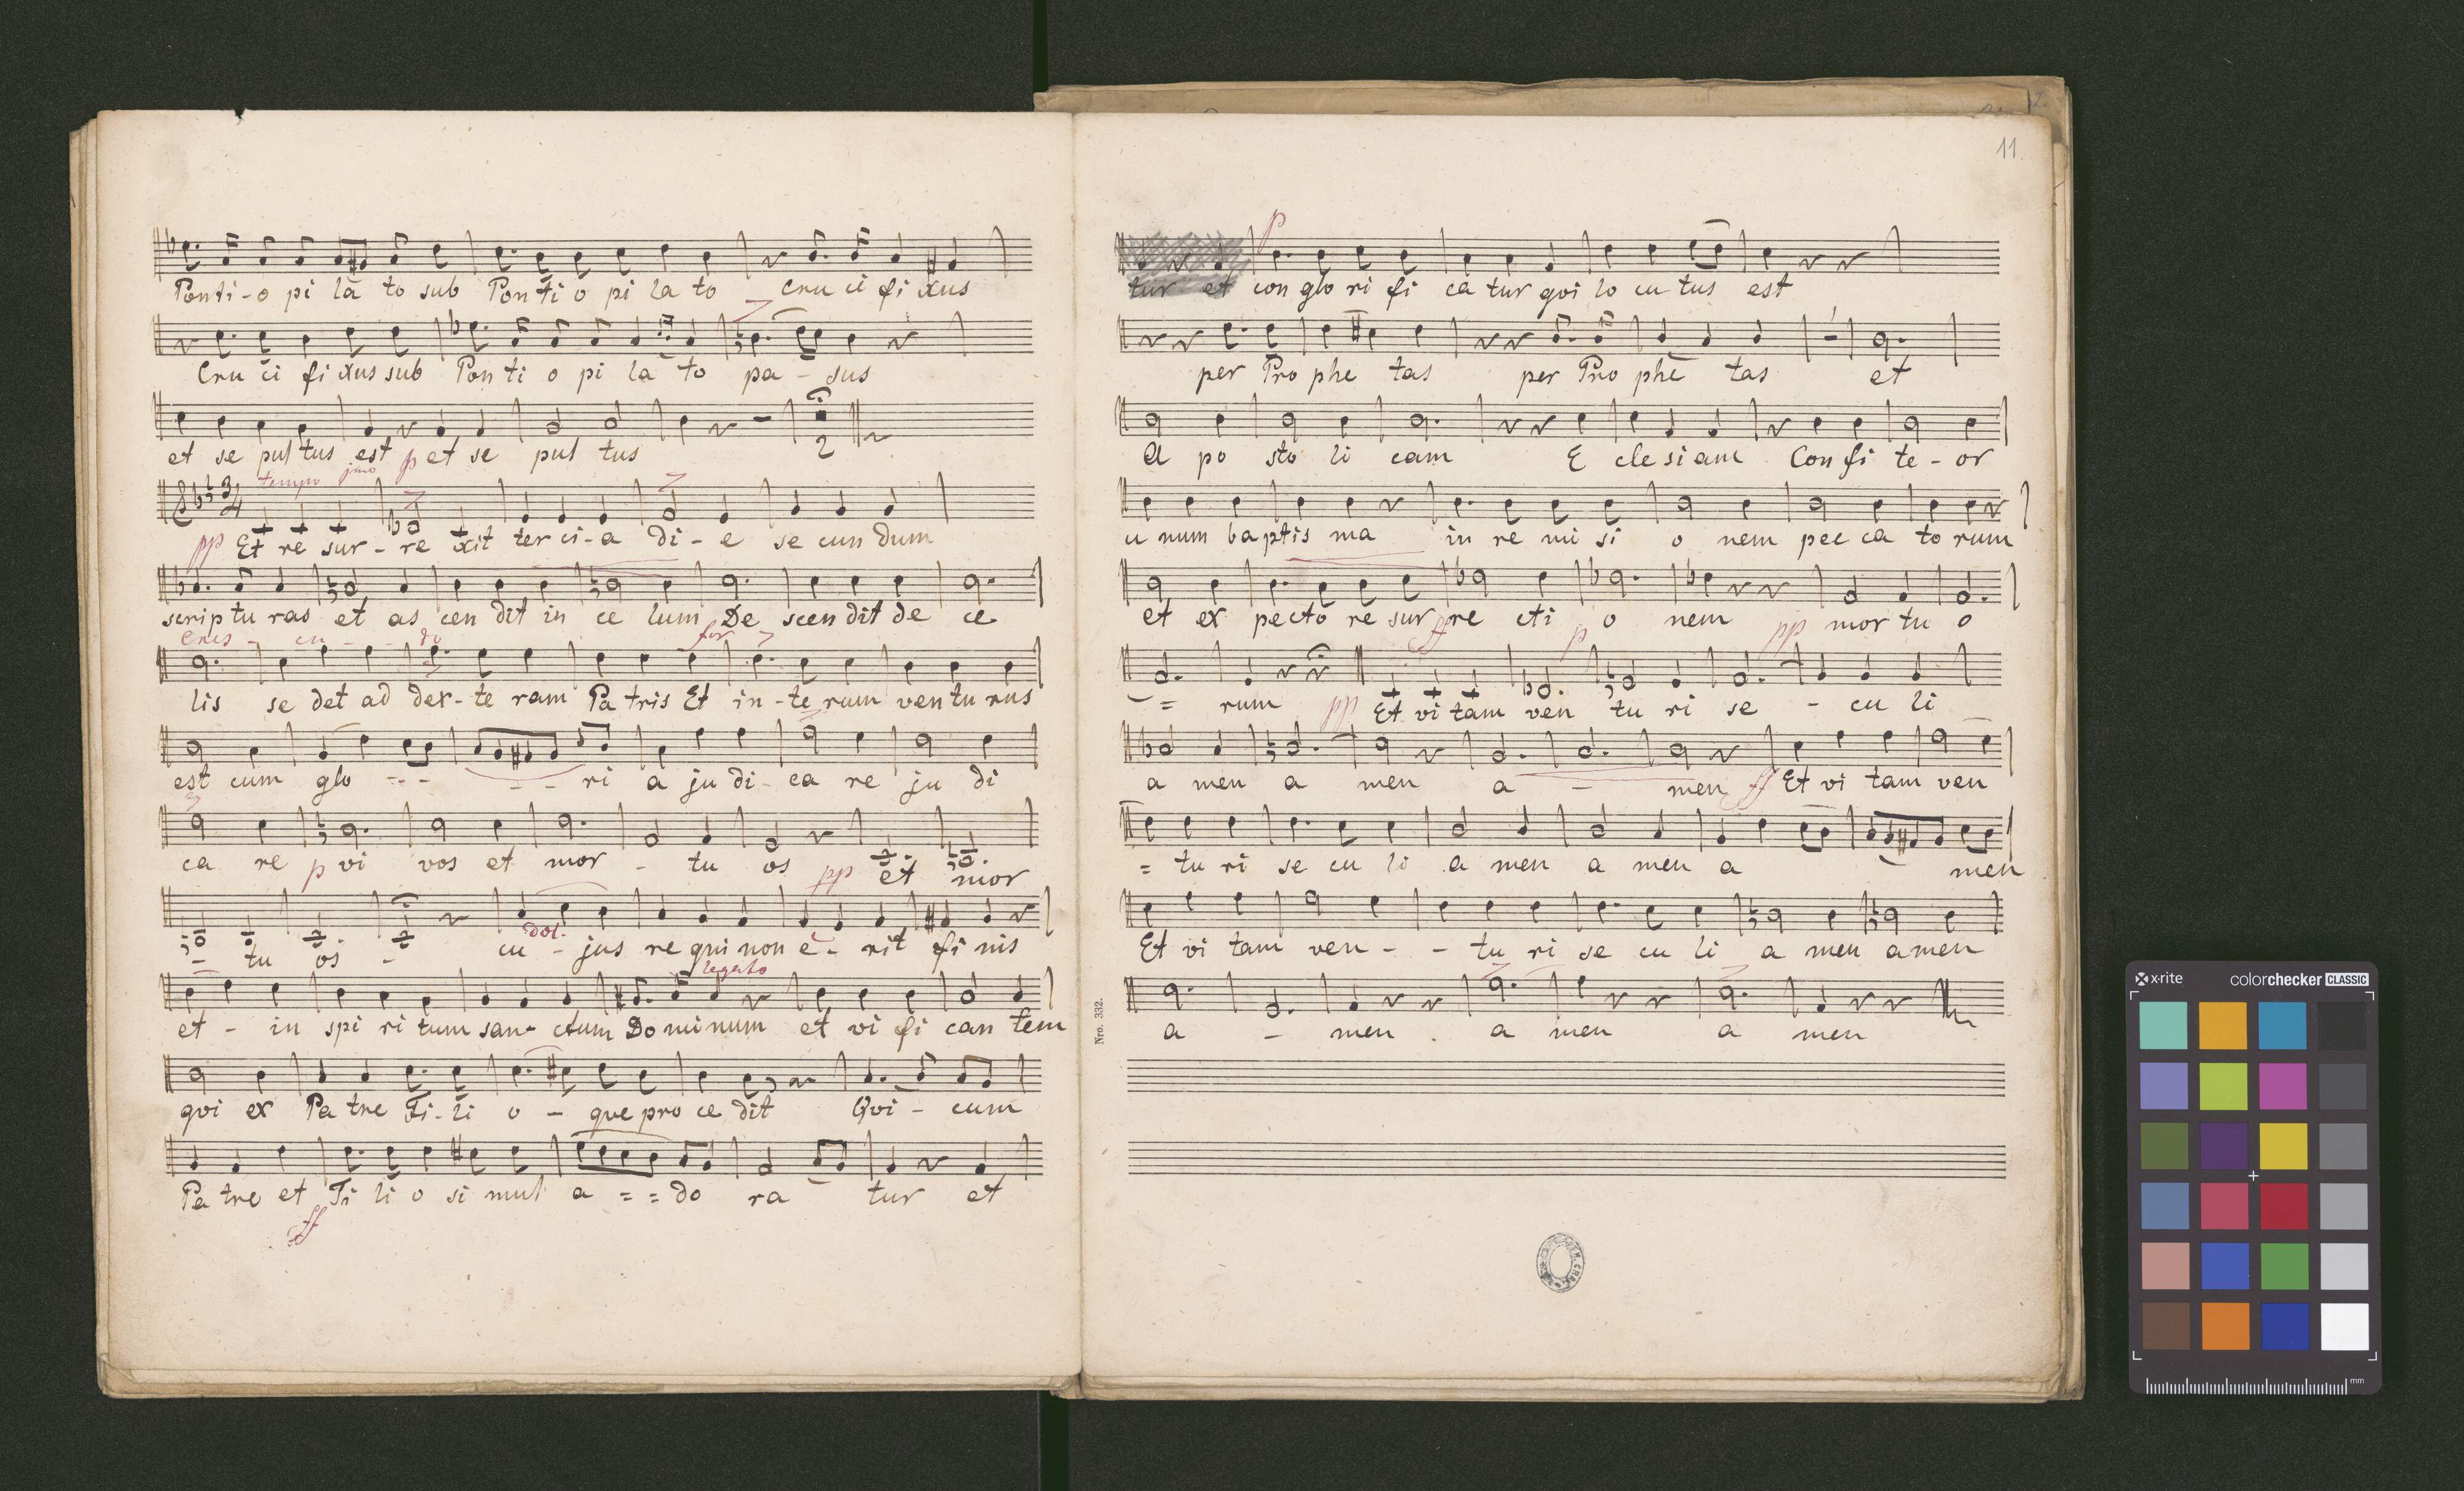 Ponti-o pi la to sub Pon ti o pi la to cru ci fi xus
Cru ci fi xus sub Pon ti o pi la to pa - sus
et se pul tus est p et se pul tus 2
tempo jmo
3/4
pp Et re sur - re xit ter ci - a di - e se cun dum
scrip tu ras et as cen dit in ce lum De scen dit de ce
cres - en - - do for
lis se det ad dex - te ram Pa tris Et in - te rum ven tu rus
est cum glo - - - - - ri a ju di - ca re ju di
ca re p vi vos et mor - tu os pp et mor
dol.
- tu os - cu - jus re qui non e - rit fi nis
legato
et - in spi ri tum san - ctum Do mi num et vi fi can tem
qvi ex Pa tre Fi - li o - que pro ce dit Qvi - cum
Pa tre et Fi li o si mul a = = do ra tur et
ff
11.
p
tur et con glo ri fi ca tur qvi lo cu tus est
per Pro phe tas per Pro phe tas et
a po sto li cam E cle si am Con fi te - or
u num ba ptis ma in re mi si o nem pec ca to rum
et ex pecto re sur re cti o nem mor tu o
ff p pp
= rum pp Et vi tam ven tu ri se - cu li
a men a men a - men ff Et vi tam ven
= tu ri se cu li a men a men a men
Et vi tam ven - - tu ri se cu li a men amen
a - men . a men a men
Nro. 332.
x-rite colorchecker CLASSIC
mm